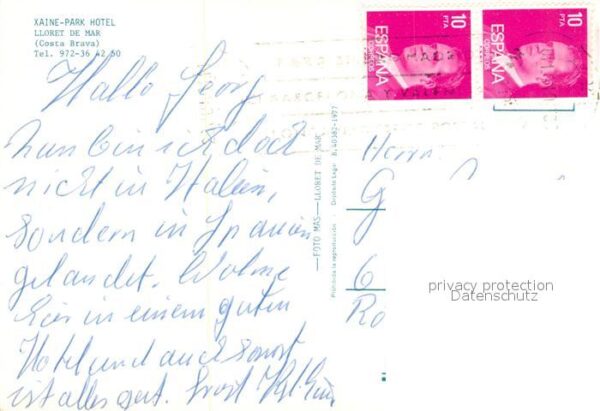 XAINE-PARK HOTEL
LLORET DE MAR
(Costa Brava)
Tel. 972-36 42 50
Hallo Georg
nun bin ich doch
nicht in Italien,
sondern in Spanien
gelandet. Wohne
hier in einem guten
Hotel und auch sonst
ist alles gut.
FOTO MAS - LLORET DE MAR
Prohibida la reproducción - Depósito Legal B. 40382-1977
10
PTA
ESPAÑA
CORREOS
10
PTA
ESPAÑA
CORREOS
Herrn
G
6
Ro
privacy protection
Datenschutz